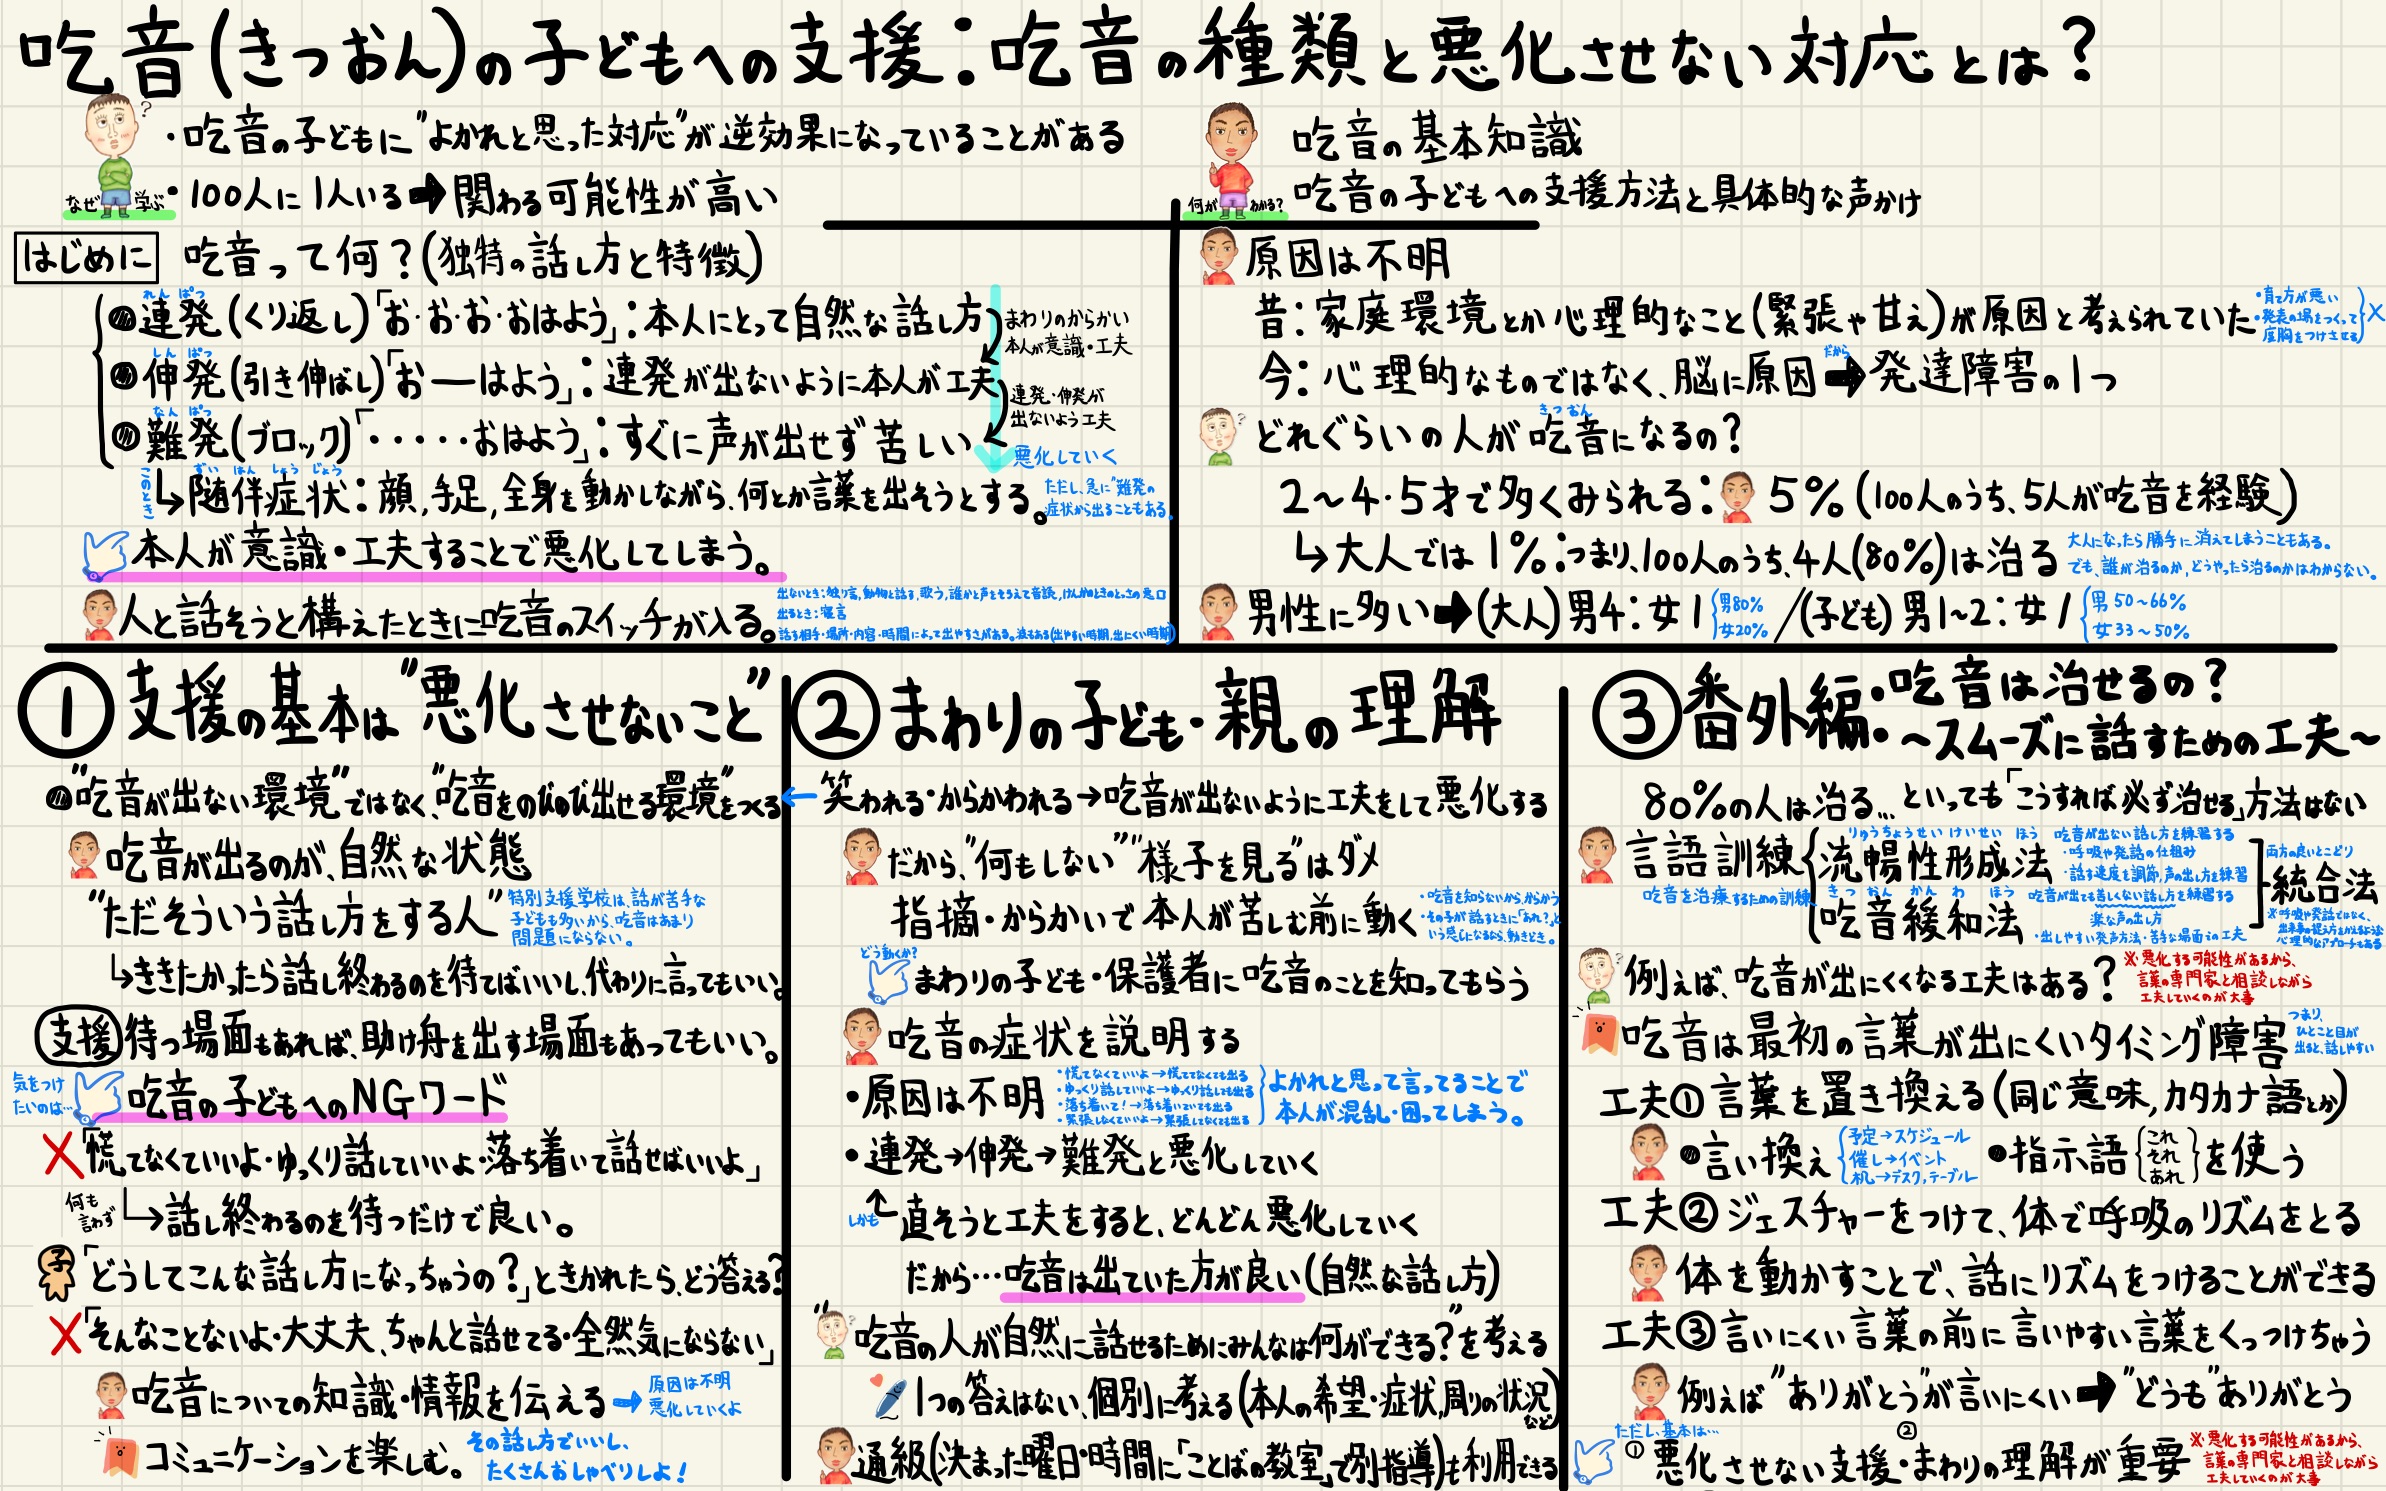 吃音(きつおん)の子どもへの支援:吃音の種類と悪化させない対応とは?
なぜ学ぶ?
・吃音の子どもに"よかれと思った対応"が逆効果になっていることがある
・100人に1人いる➡関わる可能性が高い
何がわかる?
吃音の基本知識
吃音の子どもへの支援方法と具体的な声かけ
はじめに 吃音って何?(独特の話し方と特徴)
れんぱつ
連発(くり返し)「お・お・お・おはよう」:本人にとって自然な話し方
まわりのからかい
本人が意識・工夫
しんぱつ
伸発(引き伸ばし)「お──はよう」:連発が出ないように本人が工夫
連発・伸発が
出ないよう工夫
なんぱつ
難発(ブロック)「・・・・・おはよう」:すぐに声が出せず苦しい
悪化していく
このとき
ずいはんしょうじょう
随伴症状:顔,手足,全身を動かしながら、何とか言葉を出そうとする。
ただし、急に"難発の
症状から出ることもある。
本人が意識・工夫することで悪化してしまう。
人と話そうと構えたときに吃音のスイッチが入る。
出ないとき:独り言,動物と話す,歌う,誰かと声をそろえて音読,けんかのときのとっさの悪口
出るとき:寝言
話す相手・場所・内容・時間によって出やすさがある。波もある(出やすい時期,出にくい時期)
原因は不明
昔:家庭環境とか心理的なこと(緊張や甘え)が原因と考えられていた
・育て方が悪い
・発表の場をつくって
度胸をつけさせる
×
今:心理的なものではなく、脳に原因➡発達障害の1つ
だから
どれぐらいの人が吃音になるの?
きつおん
2〜4・5才で多くみられる:5%(100人のうち、5人が吃音を経験)
↳大人では1%:つまり、100人のうち、4人(80%)は治る
大人になったら勝手に消えてしまうこともある。
でも、誰が治るのか、どうやったら治るのかはわからない。
男性に多い➡(大人)男4:女1
男80%
女20%
/(子ども)男1~2:女1
男50~66%
女33~50%
①支援の基本は"悪化させないこと"
"吃音が出ない環境"ではなく、"吃音をのびのび出せる環境"をつくる
吃音が出るのが、自然な状態
"ただそういう話し方をする人"
特別支援学校は、話が苦手な
子どもも多いから、吃音はあまり
問題にならない。
↳ききたかったら話し終わるのを待てばいいし、代わりに言ってもいい。
支援 待つ場面もあれば、助け舟を出す場面もあってもいい。
気をつけ
たいのは…
吃音の子どもへのNGワード
×「慌てなくていいよ・ゆっくり話していいよ・落ち着いて話せばいいよ」
何も
言わず
↳話し終わるのを待つだけで良い。
子「どうしてこんな話し方になっちゃうの?」ときかれたら、どう答える?
×「そんなことないよ・大丈夫、ちゃんと話せてる・全然気にならない」
吃音についての知識・情報を伝える→
原因は不明
悪化していくよ
コミュニケーションを楽しむ。
その話し方でいいし、
たくさんおしゃべりしよ!
②まわりの子ども・親の理解
←笑われる・からかわれる→吃音が出ないように工夫をして悪化する
だから、"何もしない""様子を見る"はダメ
指摘・からかいで本人が苦しむ前に動く
・吃音を知らないから、からかう
・その子が話すときに「あれ?」と
いう感じになるなら、動きどき。
どう動くか?
まわりの子ども・保護者に吃音のことを知ってもらう
吃音の症状を説明する
・原因は不明
・慌てなくていいよ→慌ててなくても出る
・ゆっくり話していいよ→ゆっくり話しても出る
・落ち着いて!→落ち着いていても出る
・緊張しなくていいよ→緊張してなくても出る
よかれと思って言ってることで
本人が混乱・困ってしまう。
・連発→伸発→難発と悪化していく
しかも
直そうと工夫をすると、どんどん悪化していく
だから…吃音は出ていた方が良い(自然な話し方)
"吃音の人が自然に話せるためにみんなは何ができる?"を考える
1つの答えはない、個別に考える(本人の希望・症状,周りの状況など)
通級(決まった曜日・時間に「ことばの教室」で別指導)も利用できる
③番外編・吃音は治せるの?
〜スムーズに話すための工夫〜
80%の人は治る…といっても「こうすれば必ず治せる」方法はない
言語訓練
吃音を治療するための訓練
りゅうちょうせいけいせいほう
流暢性形成法
吃音が出ない話し方を練習する
・呼吸や発話の仕組み
・話す速度を調節,声の出し方を練習
きつおんかんわほう
吃音緩和法
吃音が出ても苦しくない話し方を練習する
楽な声の出し方
・出しやすい発声方法・苦手な場面での工夫
両方の良いとこどり
統合法
※呼吸や発話ではなく、
出来事の捉え方をかえるような
心理的なアプローチもある
例えば、吃音が出にくくなる工夫はある?
※悪化する可能性があるから、
言葉の専門家と相談しながら
工夫していくのが大事
吃音は最初の言葉が出にくいタイミング障害
つまり、
ひとこと目が
出ると、話しやすい
工夫①言葉を置き換える(同じ意味,カタカナ語とか)
言い換え
予定→スケジュール
催し→イベント
机→デスク,テーブル
指示語
これ
それ
あれ
を使う
工夫②ジェスチャーをつけて、体で呼吸のリズムをとる
体を動かすことで、話にリズムをつけることができる
工夫③言いにくい言葉の前に言いやすい言葉をくっつけちゃう
例えば"ありがとう"が言いにくい➡"どうも"ありがとう
ただし、基本は…
①悪化させない支援・②まわりの理解が重要
※悪化する可能性があるから、
言葉の専門家と相談しながら
工夫していくのが大事